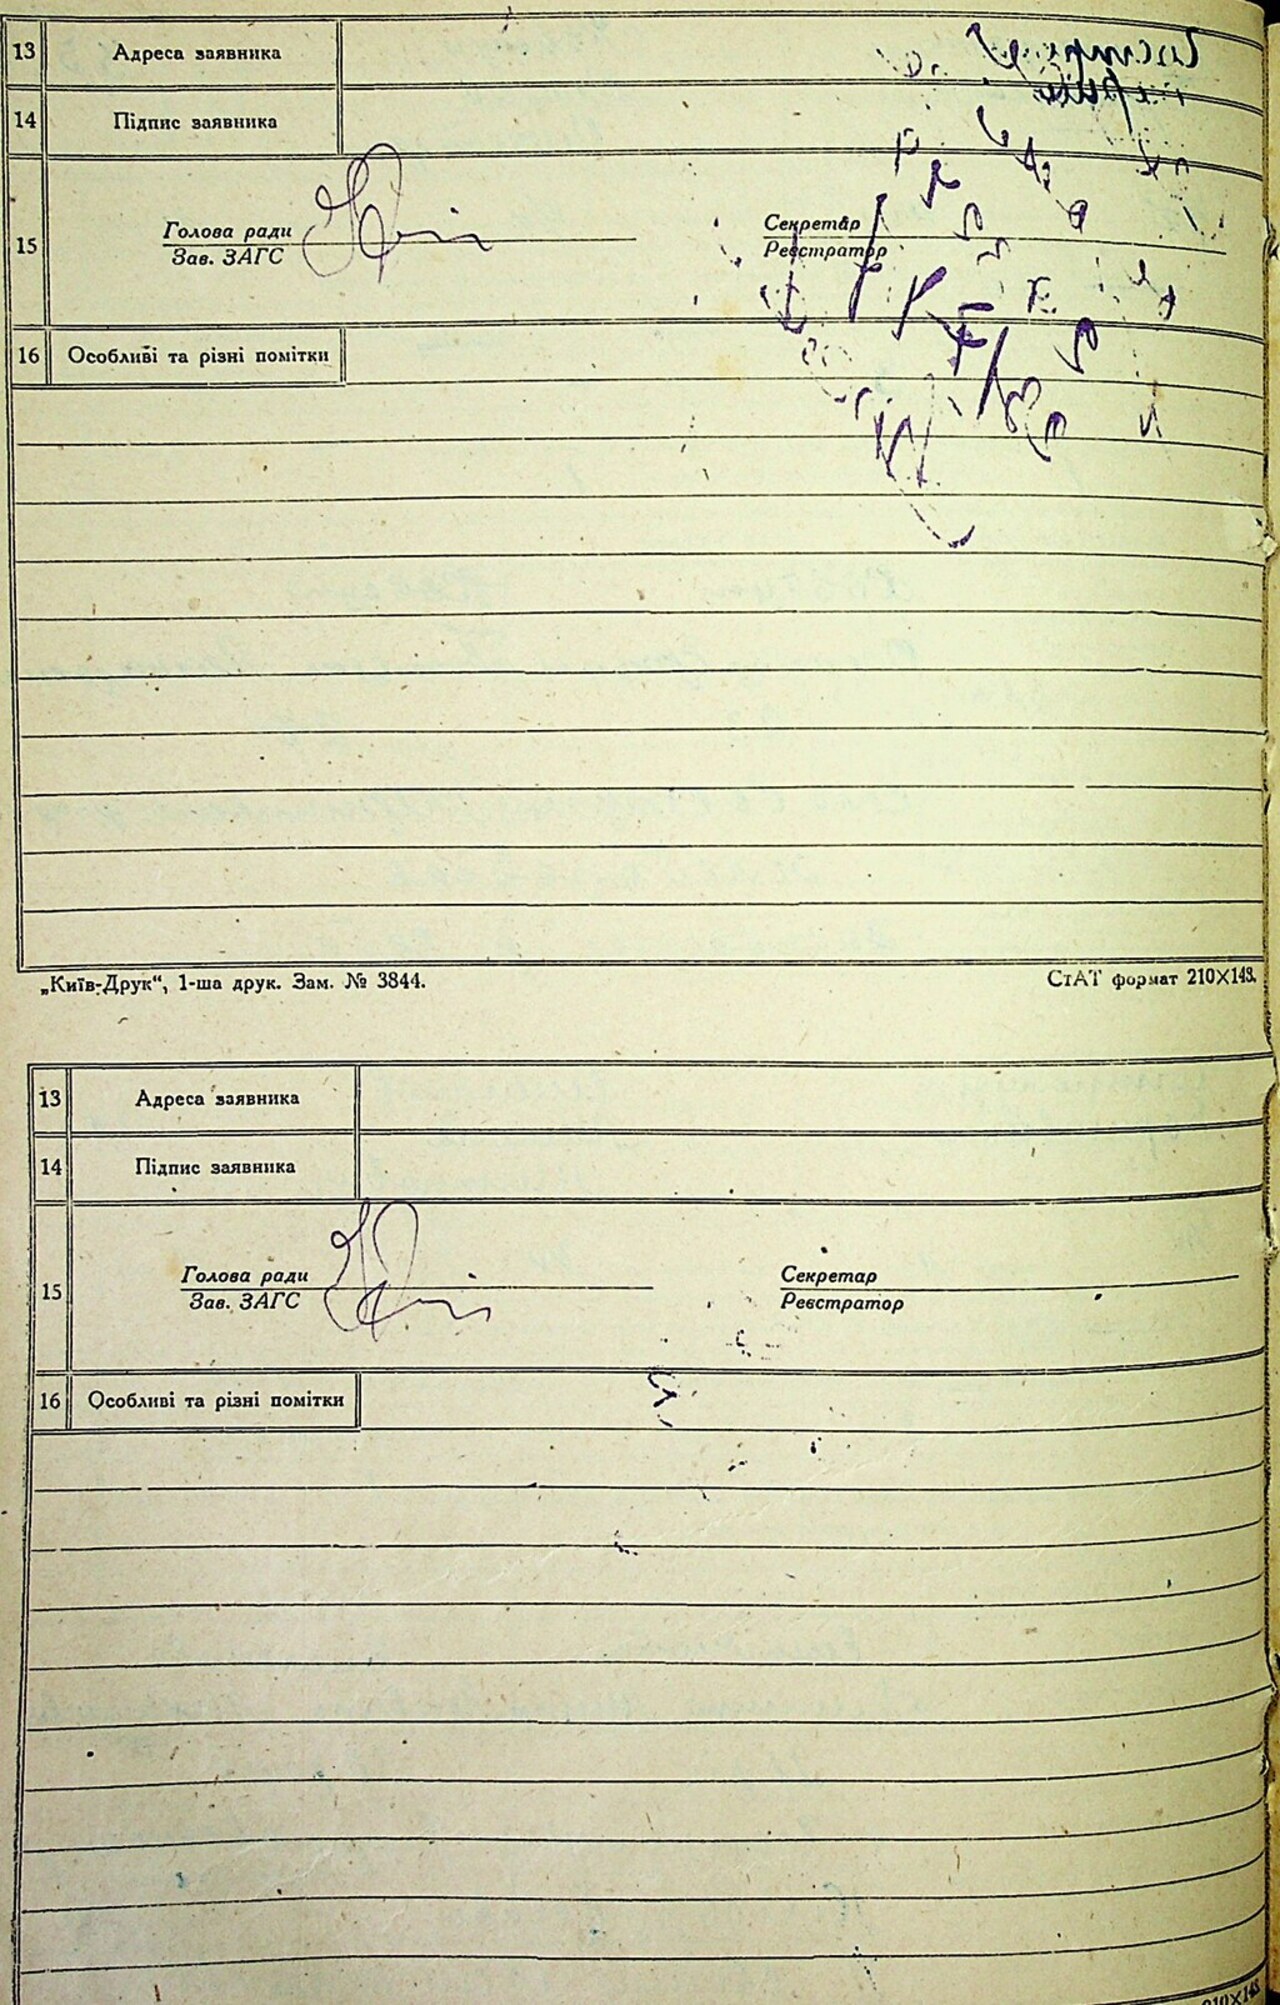 13 Адреса заявника
14 Підпис заявника
15 Голова ради Секретар
Зав. ЗАГС Реєстратор
16 Особливі та різні помітки
„Київ-Друк“, 1-ша друк. Зам. № 3844. СтАТ формат 210X143.
13 Адреса заявника
14 Підпис заявника
15 Голова ради Секретар
Зав. ЗАГС Реєстратор
16 Особливі та різні помітки